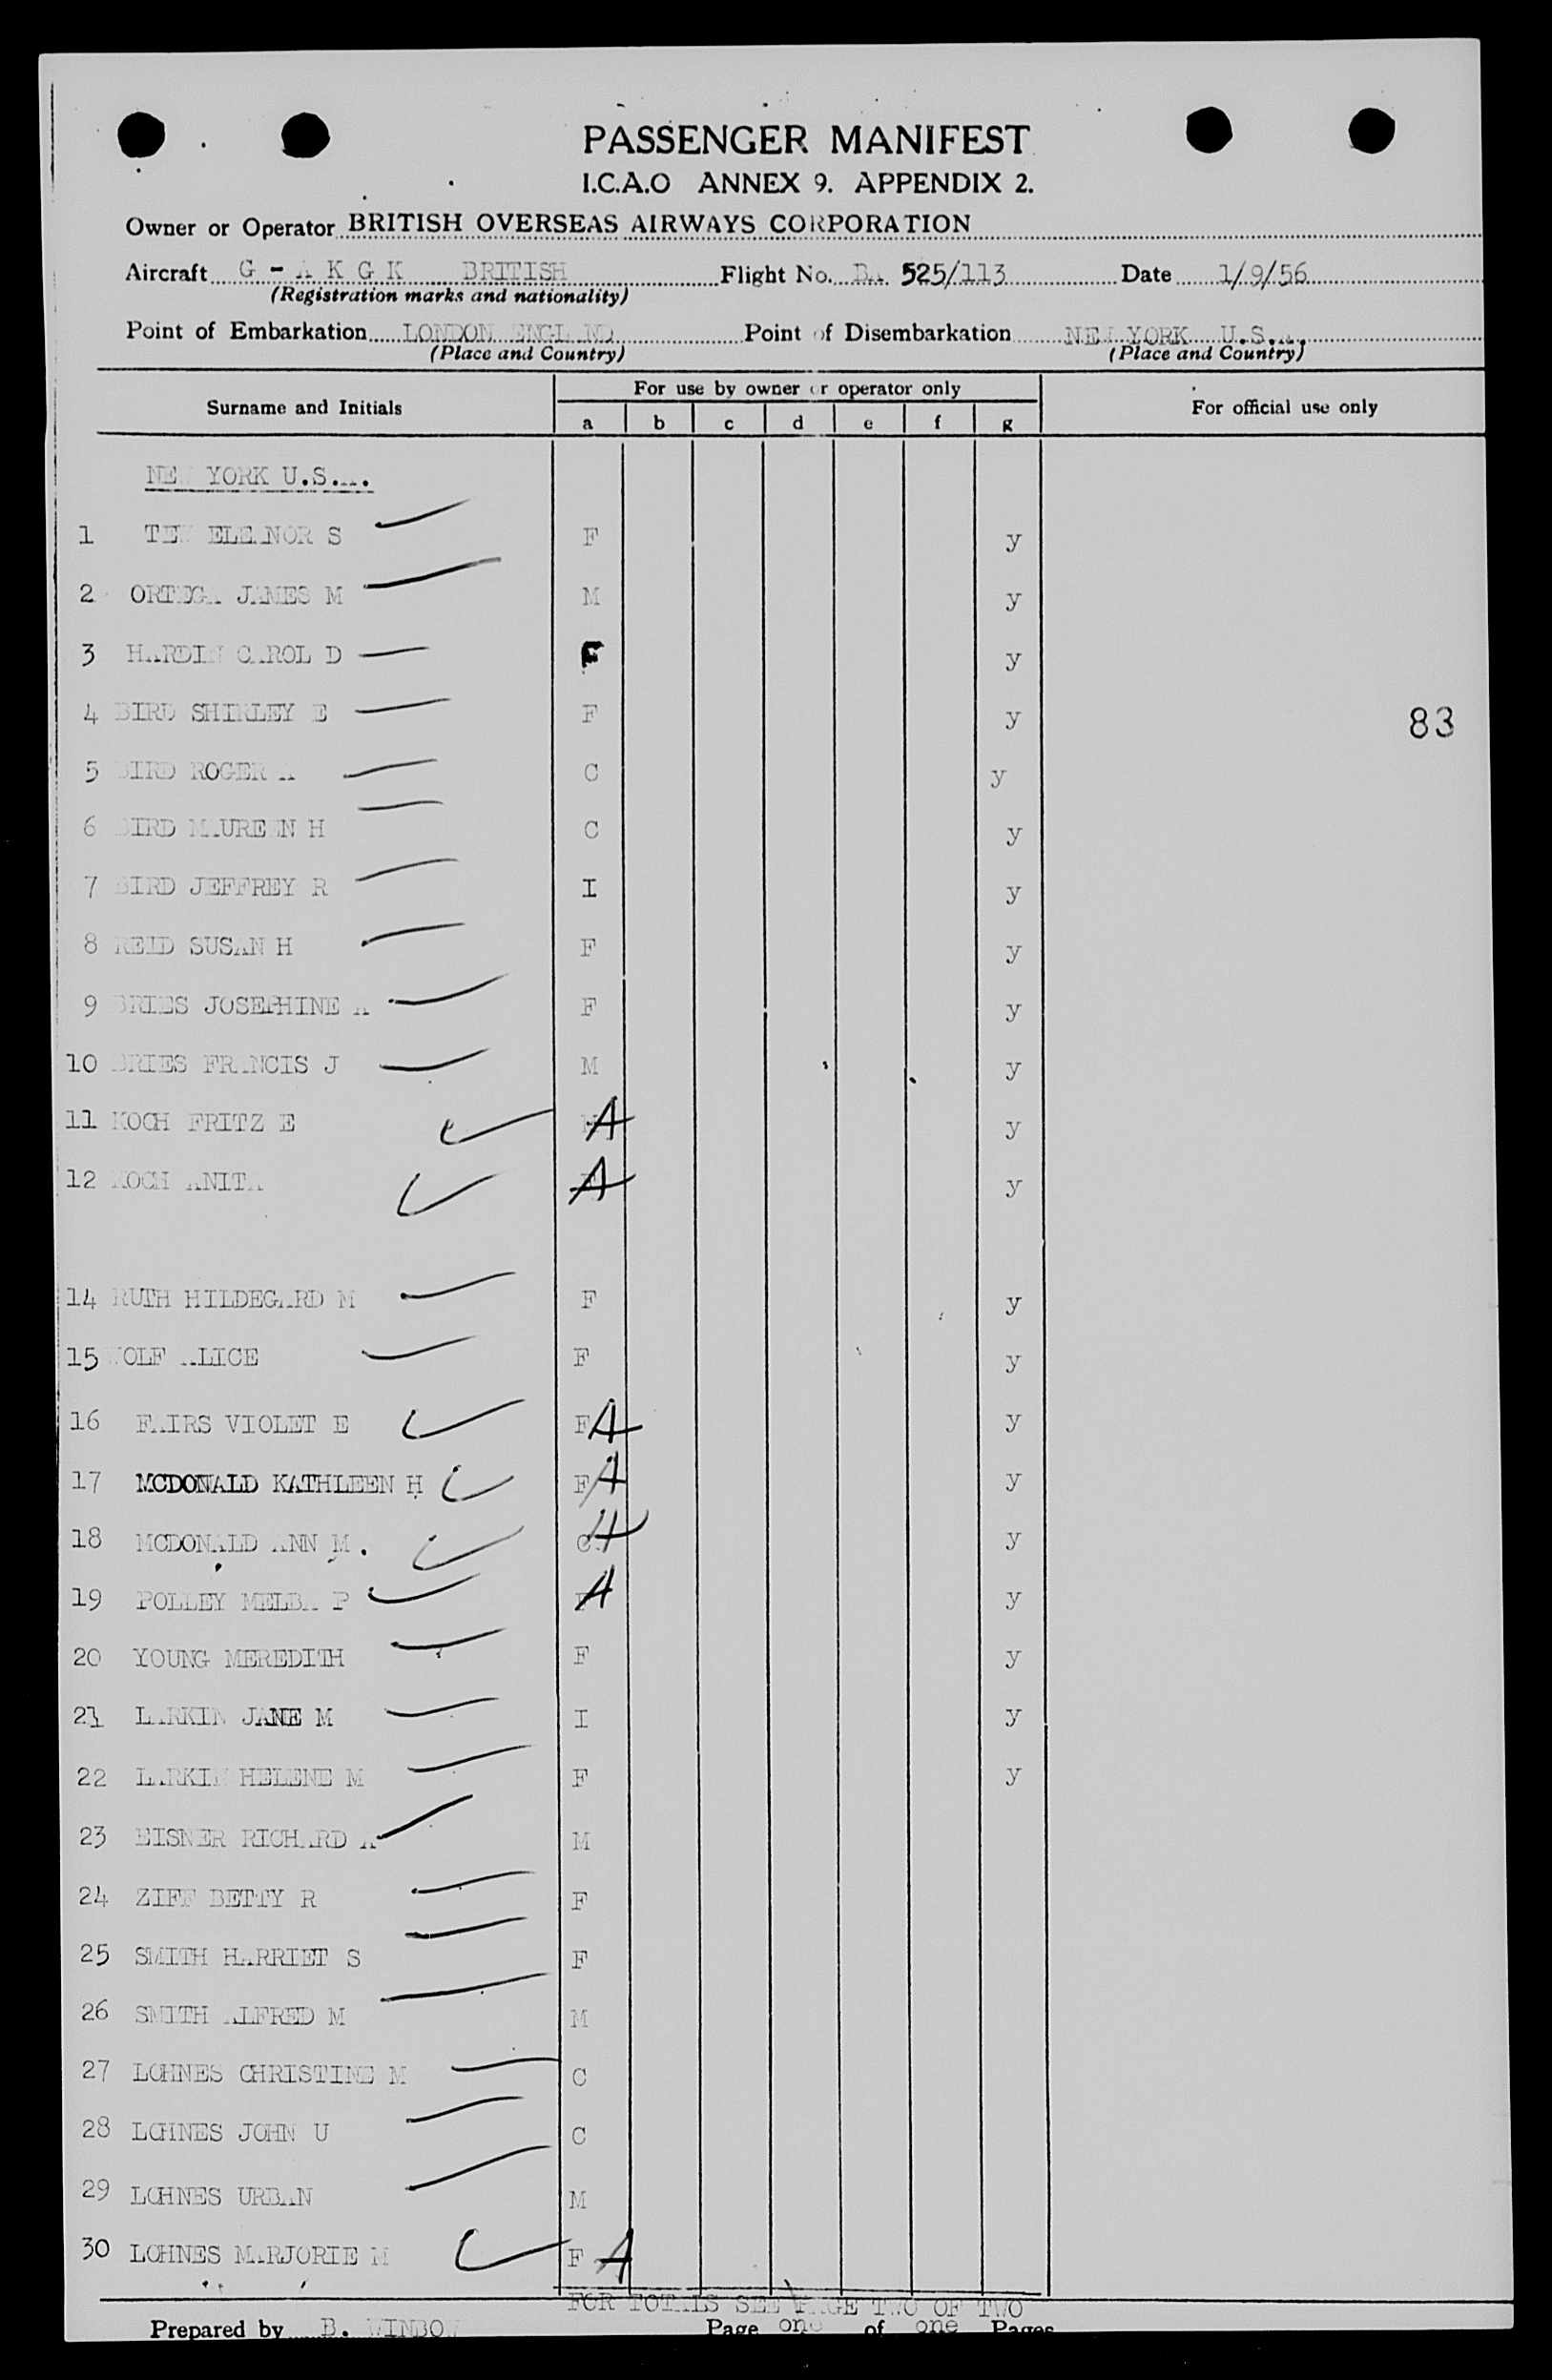 PASSENGER MANIFEST
I.C.A.O ANNEX 9. APPENDIX 2.
Owner or Operator BRITISH OVERSEAS AIRWAYS CORPORATION
Aircraft G - A K G K BRITISH Flight No. BA 525/113 Date 1/9/56
(Registration marks and nationality)
Point of Embarkation LONDON ENGLAND Point of Disembarkation NEW YORK U.S.A.
(Place and Country) (Place and Country)
Surname and Initials For use by owner or operator only For official use only
a b c d e f g
NEW YORK U.S.A.
1 TEW ELEANOR S F y
2 ORTEGA JAMES M M y
3 HARDIN CAROL D F y
4 BIRD SHIRLEY E F y
83
5 BIRD ROGER A C y
6 BIRD MAUREEN H C y
7 BIRD JEFFREY R I y
8 REID SUSAN H F y
9 BRIES JOSEPHINE A F y
10 BRIES FRANCIS J M y
11 KOCH FRITZ E A y
12 KOCH ANITA A y
14 RUTH HILDEGARD M F y
15 WOLF ALICE F y
16 FAIRS VIOLET E F A y
17 MCDONALD KATHLEEN H F A y
18 MCDONALD ANN M. C A y
19 POLLEY MELBA P A y
20 YOUNG MEREDITH F y
21 LARKIN JANE M I y
22 LARKIN HELENE M F y
23 EISNER RICHARD A M
24 ZIFF BETTY R F
25 SMITH HARRIET S F
26 SMITH ALFRED M M
27 LOHNES CHRISTINE M C
28 LOHNES JOHN U C
29 LOHNES URBAN M
30 LOHNES MARJORIE M F A
FOR TOTALS SEE PAGE TWO OF TWO
Prepared by B. WINBOW Page one of one Pages